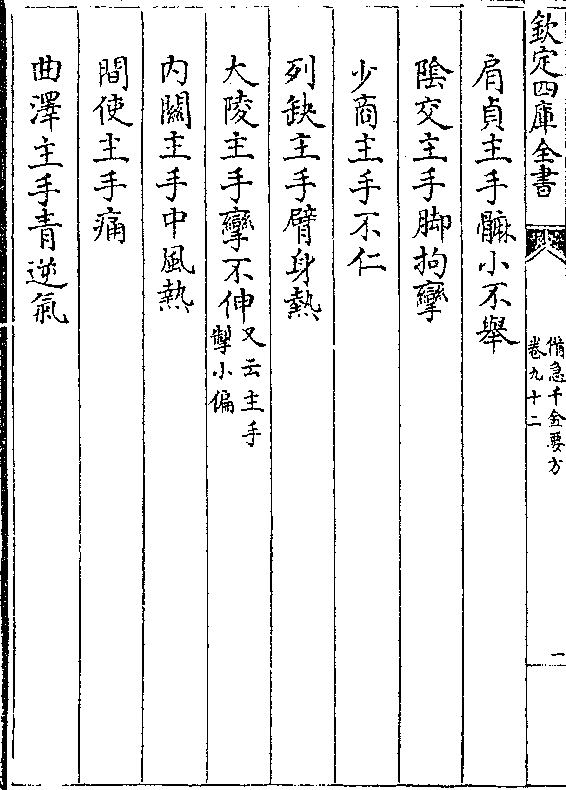 欽定四庫全書
備急千金要方
卷九十二
一
肩貞主手𪎮小不舉
陰交主手脚拘攣
少商主手不仁
列缺主手臂身熱
大陵主手攣不伸又云主手
掣小偏
内關主手中風熱
間使主手痛
曲澤主手青逆氣